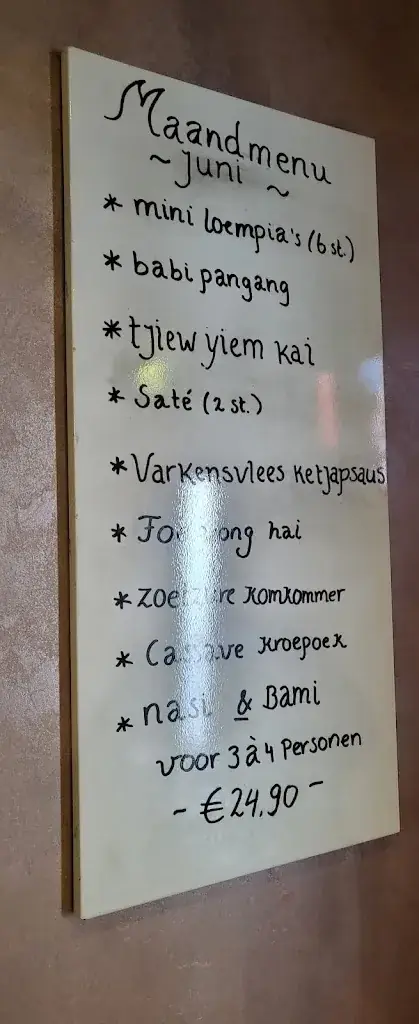 Maandmenu
~ juni ~
* mini loempia's (6 st.)
* babi pangang
* tjiew yiem kai
* Saté (2 st.)
* Varkensvlees ketjapsaus
* hai
* zoetzure komkommer
* Cassave kroepoek
* nasi & Bami
voor 3 à 4 Personen
- €24,90 -